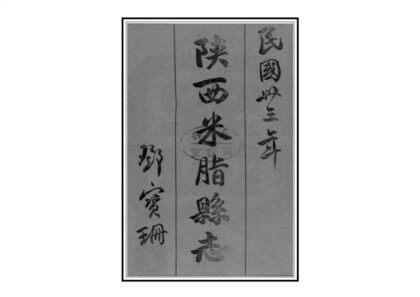 民國卅三年
陕西米脂縣志
鄧寶珊